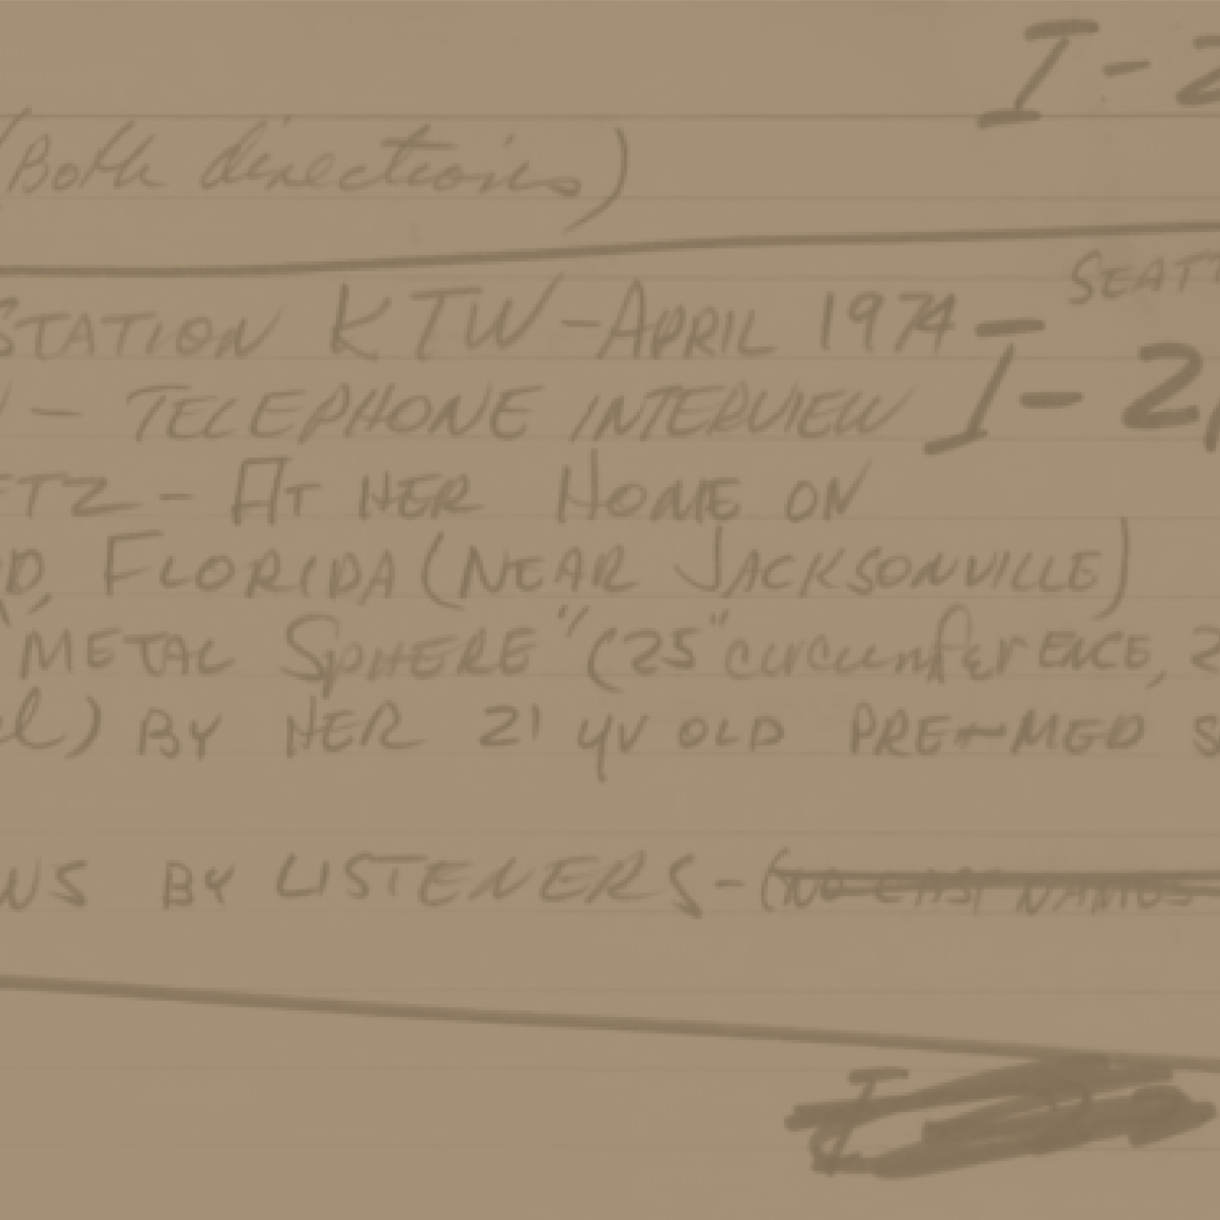 I - 2
(Both directions)
SEAT
STATION KTW - APRIL 1974 -
- TELEPHONE INTERVIEW I - 2
ETZ - AT HER HOME ON
D, FLORIDA (NEAR JACKSONVILLE)
"METAL SPHERE" (25" circumference, 2
el) BY HER 21 yr OLD PRE-MED S
WS BY LISTENERS - (NO LAST NAMES
I